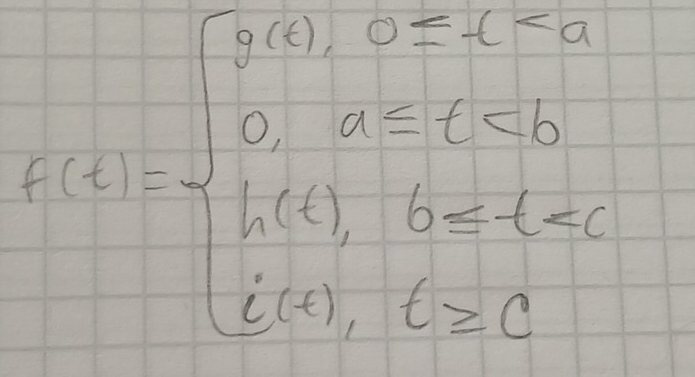 g(t), 0 ≤ t < a
0, a ≤ t < b
f(t) =
h(t), b ≤ t < c
i(t), t ≥ c